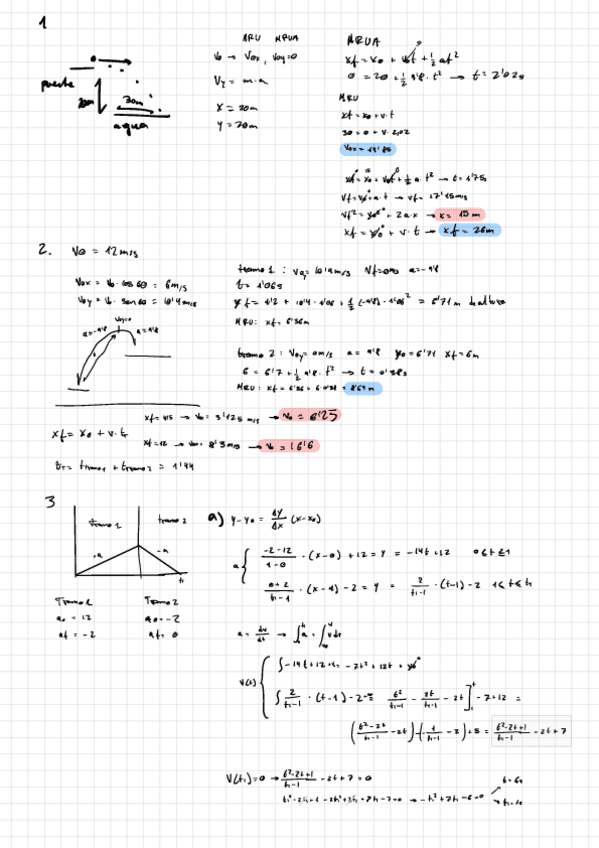 1
MRU MRUA
v0 → V0x, V0y=0
Vy = m·a
X = 30m
Y = 20m
puente
20m
30m
agua
MRUA
xf = x0 + v0t + 1/2 at²
0 = 20 + 1/2 9'8 · t² → t = 2'02s
MRU
xf = x0 + v·t
30 = 0 + v·2,02
V0x = 14'85
xf = x0 + v0t + 1/2 a·t² → t = 1'75s
Vf = v0 + a·t → vf = 17'15m/s
vf² = v0² + 2a·x → x = 15m
xf = x0 + v·t → xf = 26m
2. V0 = 12m/s
V0x = V0·cos60 = 6m/s
V0y = V0·sen60 = 10'4m/s
Voy=0
a=-9'8
a=9'8
tramo 1: V0y = 10'4m/s Vf=0m/s a=-9'8
t = 1'06s
yf = 1'2 + 10'4·1'06 + 1/2 (-9'8)·1'06² = 6'71m de altura
MRU: xf = 6'36m
tramo 2: V0y = 0m/s a = 9'8 y0 = 6'71 xf = 6m
6 = 6'7 + 1/2 9'8·t² → t = 0'38s
xf = 4'5 → v0 = 3'125 m/s → v0 = 6'25
xf = x0 + v·tt
xf = 12 → v0 = 8'3m/s → v0 = 16'6
tt = tramo1 + tramo2 = 1'44
3
tramo 1
tramo 2
+a
-a
t1
Tramo 1
a0 = 12
af = -2
Tramo 2
a0 = -2
af = 0
a) y-y0 = Δy/Δx (x-x0)
a { (-2-12)/(1-0) · (x-0) + 12 = y = -14t + 12 0≤t≤1
(0+2)/(t1-1) · (x-1) - 2 = y = 2/(t1-1) · (t-1) - 2 1≤t≤t1
a = dv/dt →
V(t) { ∫ -14t + 12 = -7t² + 12t + v0
∫ 2/(t1-1) · (t-1) - 2 = t²/(t1-1) - 2t/(t1-1) - 2t ] -7+12 =
((t²-2t)/(t1-1) - 2t) - (-1/(t1-1) - 2) + 5 = (t²-2t+1)/(t1-1) - 2t + 7
V(t1) = 0 → (t²-2t+1)/(t1-1) - 2t + 7 = 0
→ -t1² + 7t1 - 6 = 0